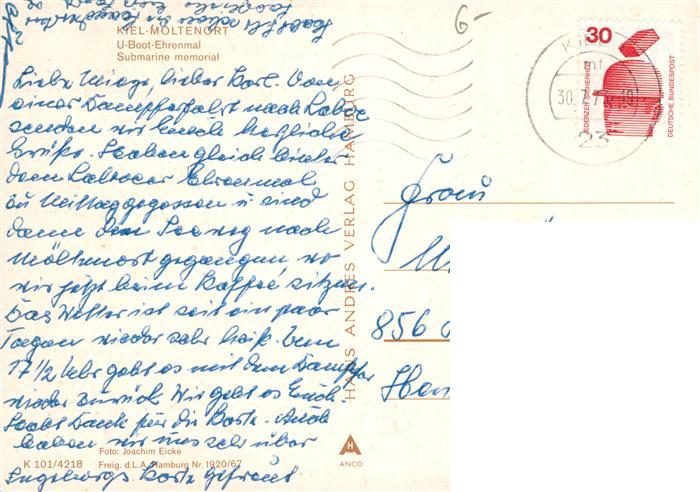 KIEL-MÖLTENORT
U-Boot-Ehrenmal
Submarine memorial
Liebe Mieze, lieber Karl. Von
einer Dampferfahrt nach Laboe
senden wir Euch herzliche
Grüße. Haben gleich hinter
dem Laboeer Ehrenmal
zu Mittag gegessen u sind
dann den Seeweg nach
Möltenort gegangen, wo
wir jetzt beim Kaffee sitzen.
Das Wetter ist seit ein paar
Tagen wieder sehr heiß. Um
17 1/2 Uhr geht es mit dem Dampfer
wieder zurück. Wie geht es Euch.
Habt Dank für die Karte. Auch
haben wir uns sehr über
Ingeborgs Karte gefreut.
Foto: Joachim Eicke
K 101/4218 Freig. d.L.A. Hamburg Nr. 1920/67
HANS ANDRES VERLAG HAMBURG
H
ANCO
6-
KIEL
mf
30.7.7
23
30
JEDERZEIT SICHERHEIT
DEUTSCHE BUNDESPOST
Frau
856